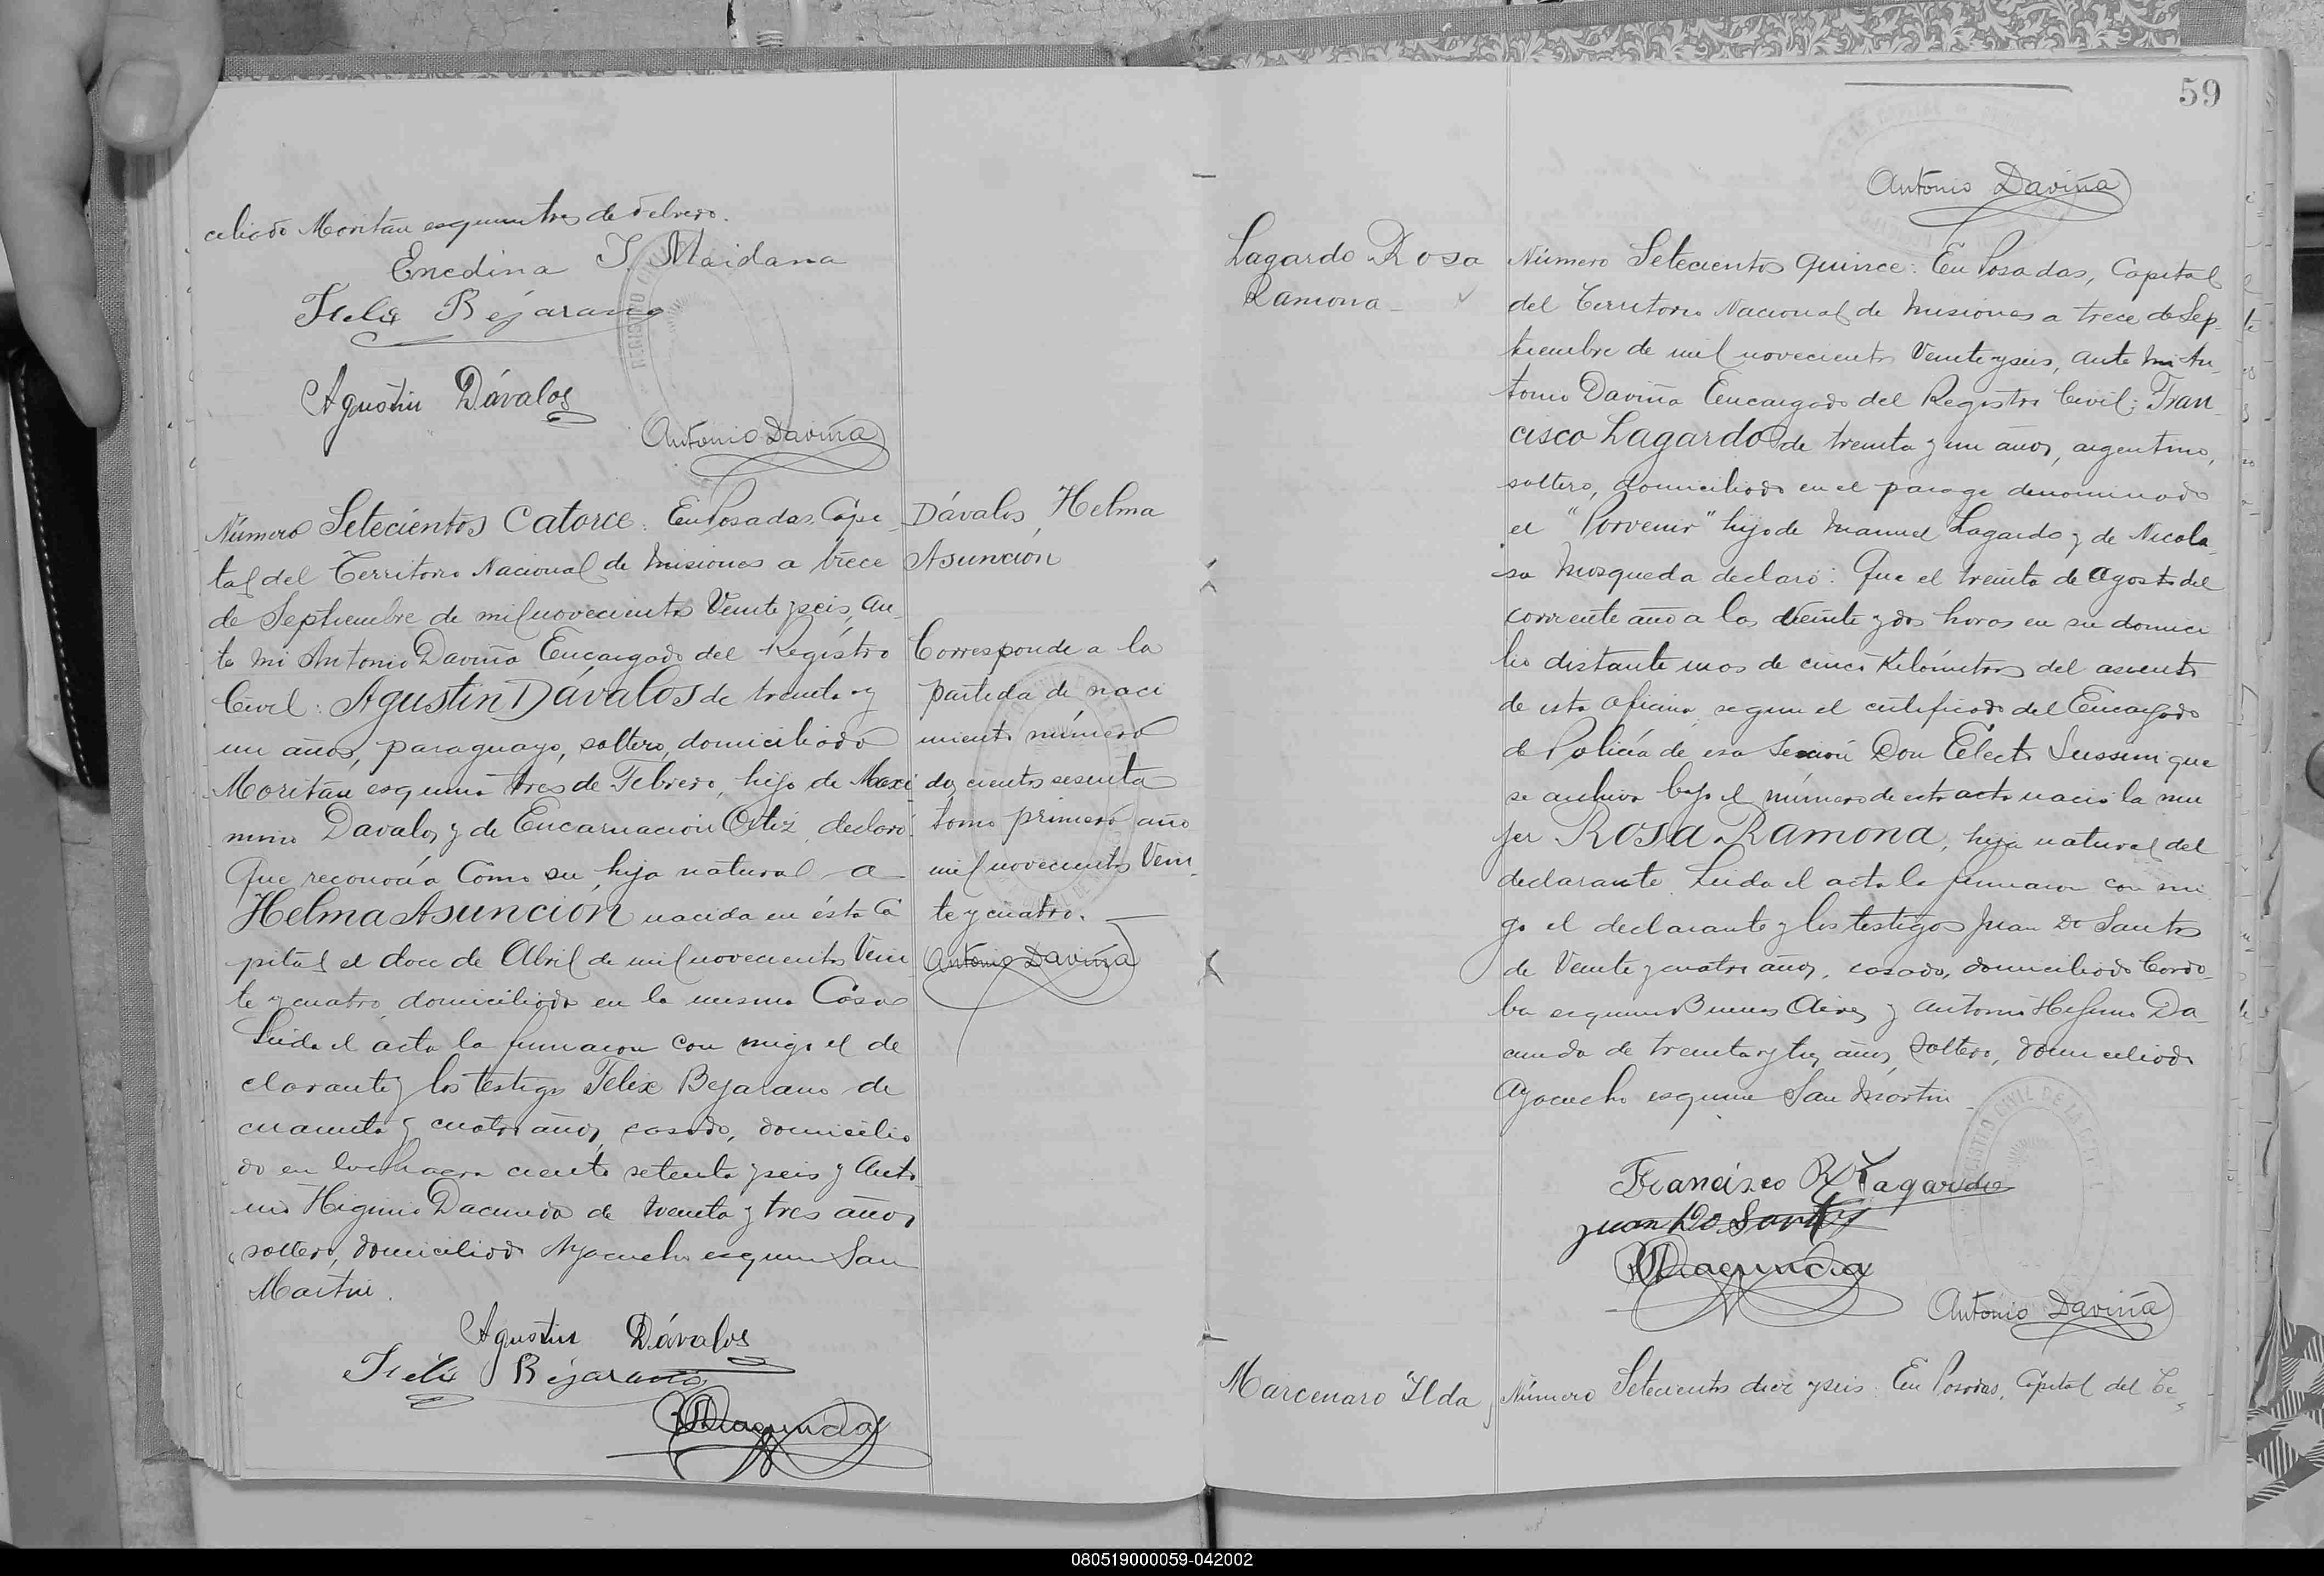 ciliado Moritán esquina tres de Febrero.
Enedina I. Maidana
Felix Bejarano
Agustin Dávalos
Antonio Daviña
Número Setecientos Catorce: En Posadas, Capi-
tal del Territorio Nacional de Misiones a trece
de Septiembre de mil novecientos Veinte y seis, an-
te mi Antonio Daviña Encargado del Registro
Civil: Agustin Dávalos de treinta y
un años, paraguayo, soltero, domiciliado
Moritán esquina tres de Febrero, hijo de Maxi
mino Davalos y de Encarnación Ortiz, declaró:
Que reconocía como su hija natural a
Helma Asunción nacida en ésta Ca
pital el doce de Abril de mil novecientos Vein
te y cuatro, domiciliada en la misma Casa
Leida el acta la firmaron con migo el de
clarante y los testigos Felix Bejarano de
cuarenta y cuatro años, casado, domicilia
do en la chacra ciento setenta y seis y Anto
nio Higinio Dacunda de treinta y tres años,
soltero, domiciliado Ayacucho esquina San
Martin.
Agustin Dávalos
Felix Bejarano
Dacunda
Dávalos, Helma
Asunción
Corresponde a la
partida de naci
miento número
dos cientos sesenta
tomo primero año
mil novecientos Vein-
te y cuatro.
Antonio Daviña
59
Antonio Daviña
Lagardo Rosa
Ramona
Número Setecientos quince: En Posadas, Capital
del Territorio Nacional de Misiones a trece de Sep-
tiembre de mil novecientos Veinte y seis, ante mi An-
tonio Daviña Encargado del Registro Civil: Fran-
cisco Lagardo de treinta y un años, argentino,
soltero, domiciliado en el parage denominado
el "Porvenir" hijo de Manuel Lagardo y de Nicola-
sa Mosqueda declaró: Que el treinta de Agosto del
corriente año a las veinte y dos horas en su domici
lio distante mas de cinco Kilómetros del asiento
de esta oficina, segun el certificado del Encargado
de Policía de esa Sección Don Electo Sussini que
se archiva bajo el número de esta acta nació la mu
jer Rosa Ramona, hija natural del
declarante. Leida el acta la firmaron con mi
go el declarante y los testigos Juan Do Santos
de Veinte y cuatro años, casado, domiciliado Cordo-
ba esquina Buenos Aires y Antonio Higinio Da-
cunda de treinta y tres años, soltero, domiciliado
Ayacucho esquina San Martin
Francisco R Lagardo
Juan Do Santos
Dacunda
Antonio Daviña
Marcenaro Ilda
Número Setecientos diez y seis: En Posadas, Capital del Te-
080519000059-042002